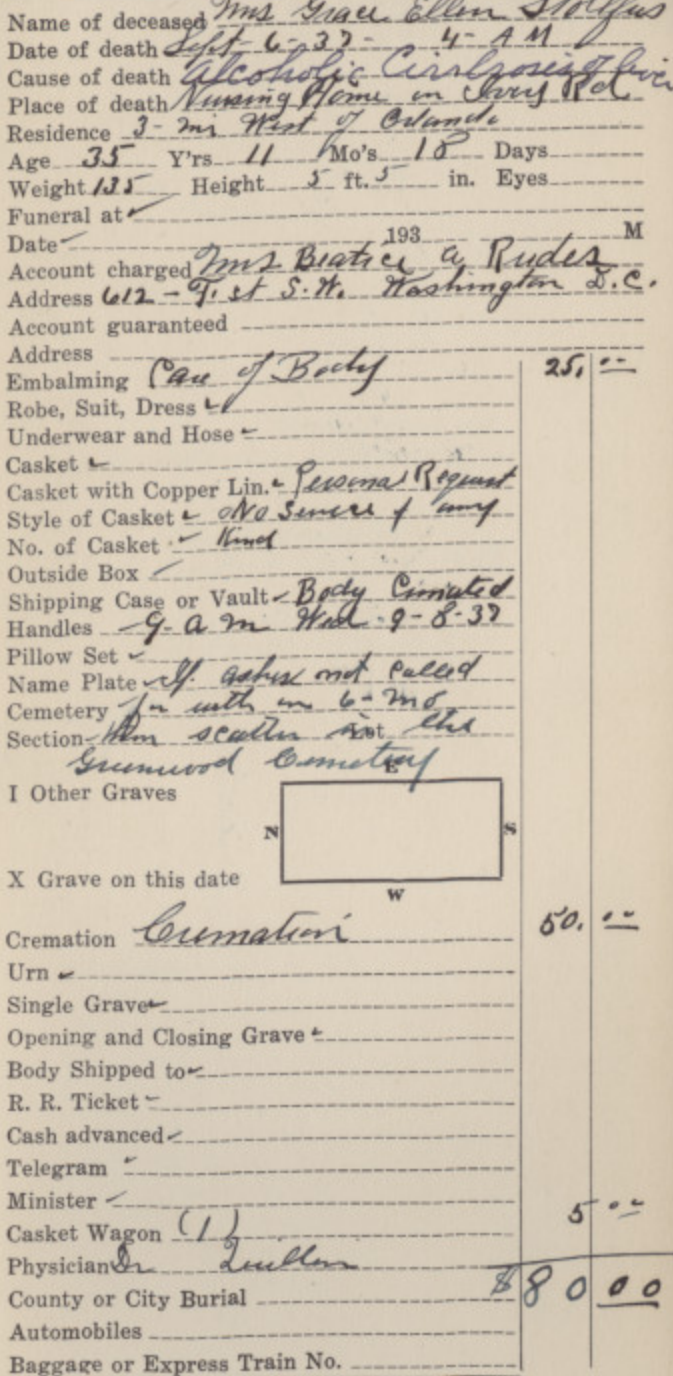 Name of deceased Mrs Grace Ellen Stoltfus
Date of death Sept-6-37- 4-AM
Cause of death Alcoholic Cirrhosis of liver
Place of death Nursing Home on Ivey Rd
Residence 3-mi West of Orlando
Age 35 Y'rs 11 Mo's 18 Days
Weight 135 Height 5 ft. 5 in. Eyes
Funeral at
Date 193 M
Account charged Mrs Beatice A Rudes
Address 612-T. st S.W. Washington D.C.
Account guaranteed
Address
Embalming Care of Body 25. 00
Robe, Suit, Dress
Underwear and Hose
Casket
Casket with Copper Lin. Personal Request
Style of Casket No Service of any
No. of Casket Kind
Outside Box
Shipping Case or Vault Body Cimated
Handles 9-am Wed-9-8-37
Pillow Set
Name Plate If ashes not called
Cemetery for with in 6-mo
Section then scatter in the Lot
Greenwood Cemetery
E
I Other Graves
N S
X Grave on this date
W
Cremation Cremation 50. 00
Urn
Single Grave
Opening and Closing Grave
Body Shipped to
R. R. Ticket
Cash advanced
Telegram
Minister
Casket Wagon (1) 5 00
Physician Dr Quillen
County or City Burial $80 00
Automobiles
Baggage or Express Train No.